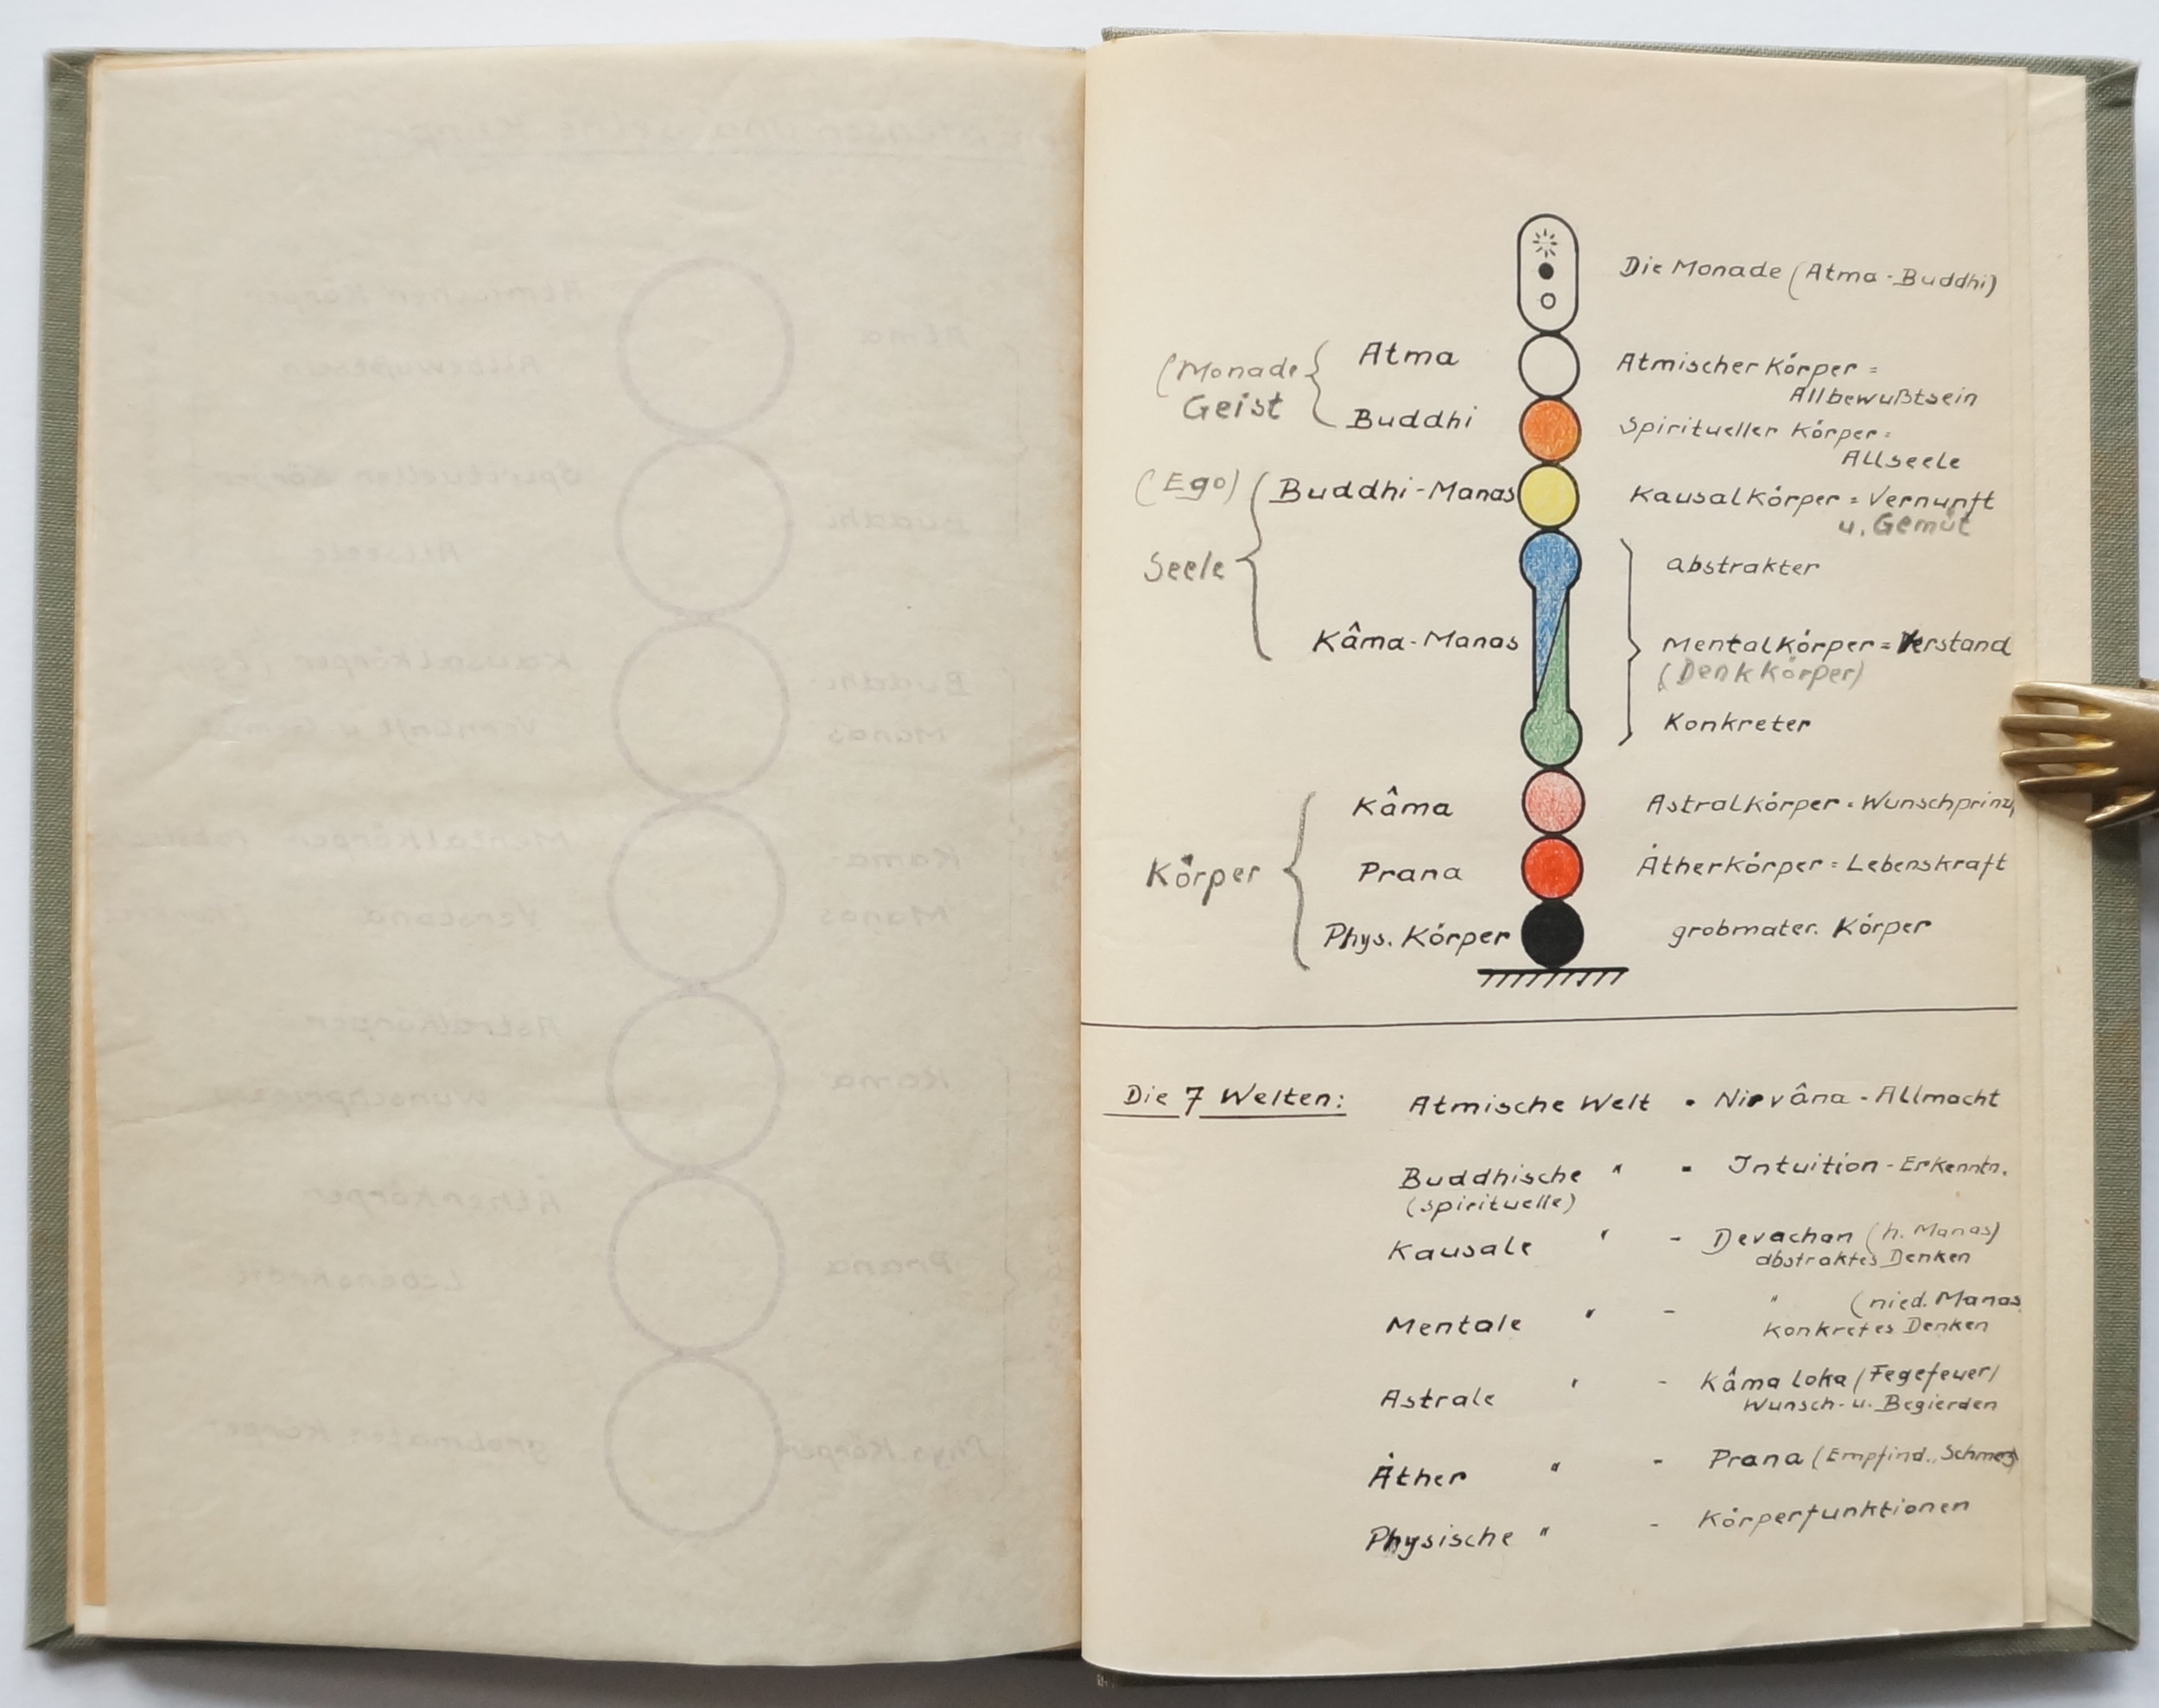 Die Monade (Atma-Buddhi)
(Monade
Geist
Atma
Atmischer Körper =
Allbewußtsein
Buddhi
Spiritueller Körper =
Allseele
(Ego)
Buddhi-Manas
Kausalkörper = Vernunft
u. Gemüt
Seele
abstrakter
Kâma-Manas
Mentalkörper = Verstand
(Denkkörper)
Konkreter
Körper
Kâma
Astralkörper = Wunschprinz
Prana
Ätherkörper = Lebenskraft
Phys. Körper
grobmater. Körper
Die 7 Welten:
Atmische Welt = Nirvâna - Allmacht
Buddhische " = Intuition - Erkenntn.
(spirituelle)
Kausale " - Devachan (h. Manas)
abstraktes Denken
Mentale " - " (nied. Manas
Konkretes Denken
Astrale " - Kâma loka (Fegefeuer)
Wunsch- u. Begierden
Äther " - Prana (Empfind., Schmerz
Physische " - Körperfunktionen